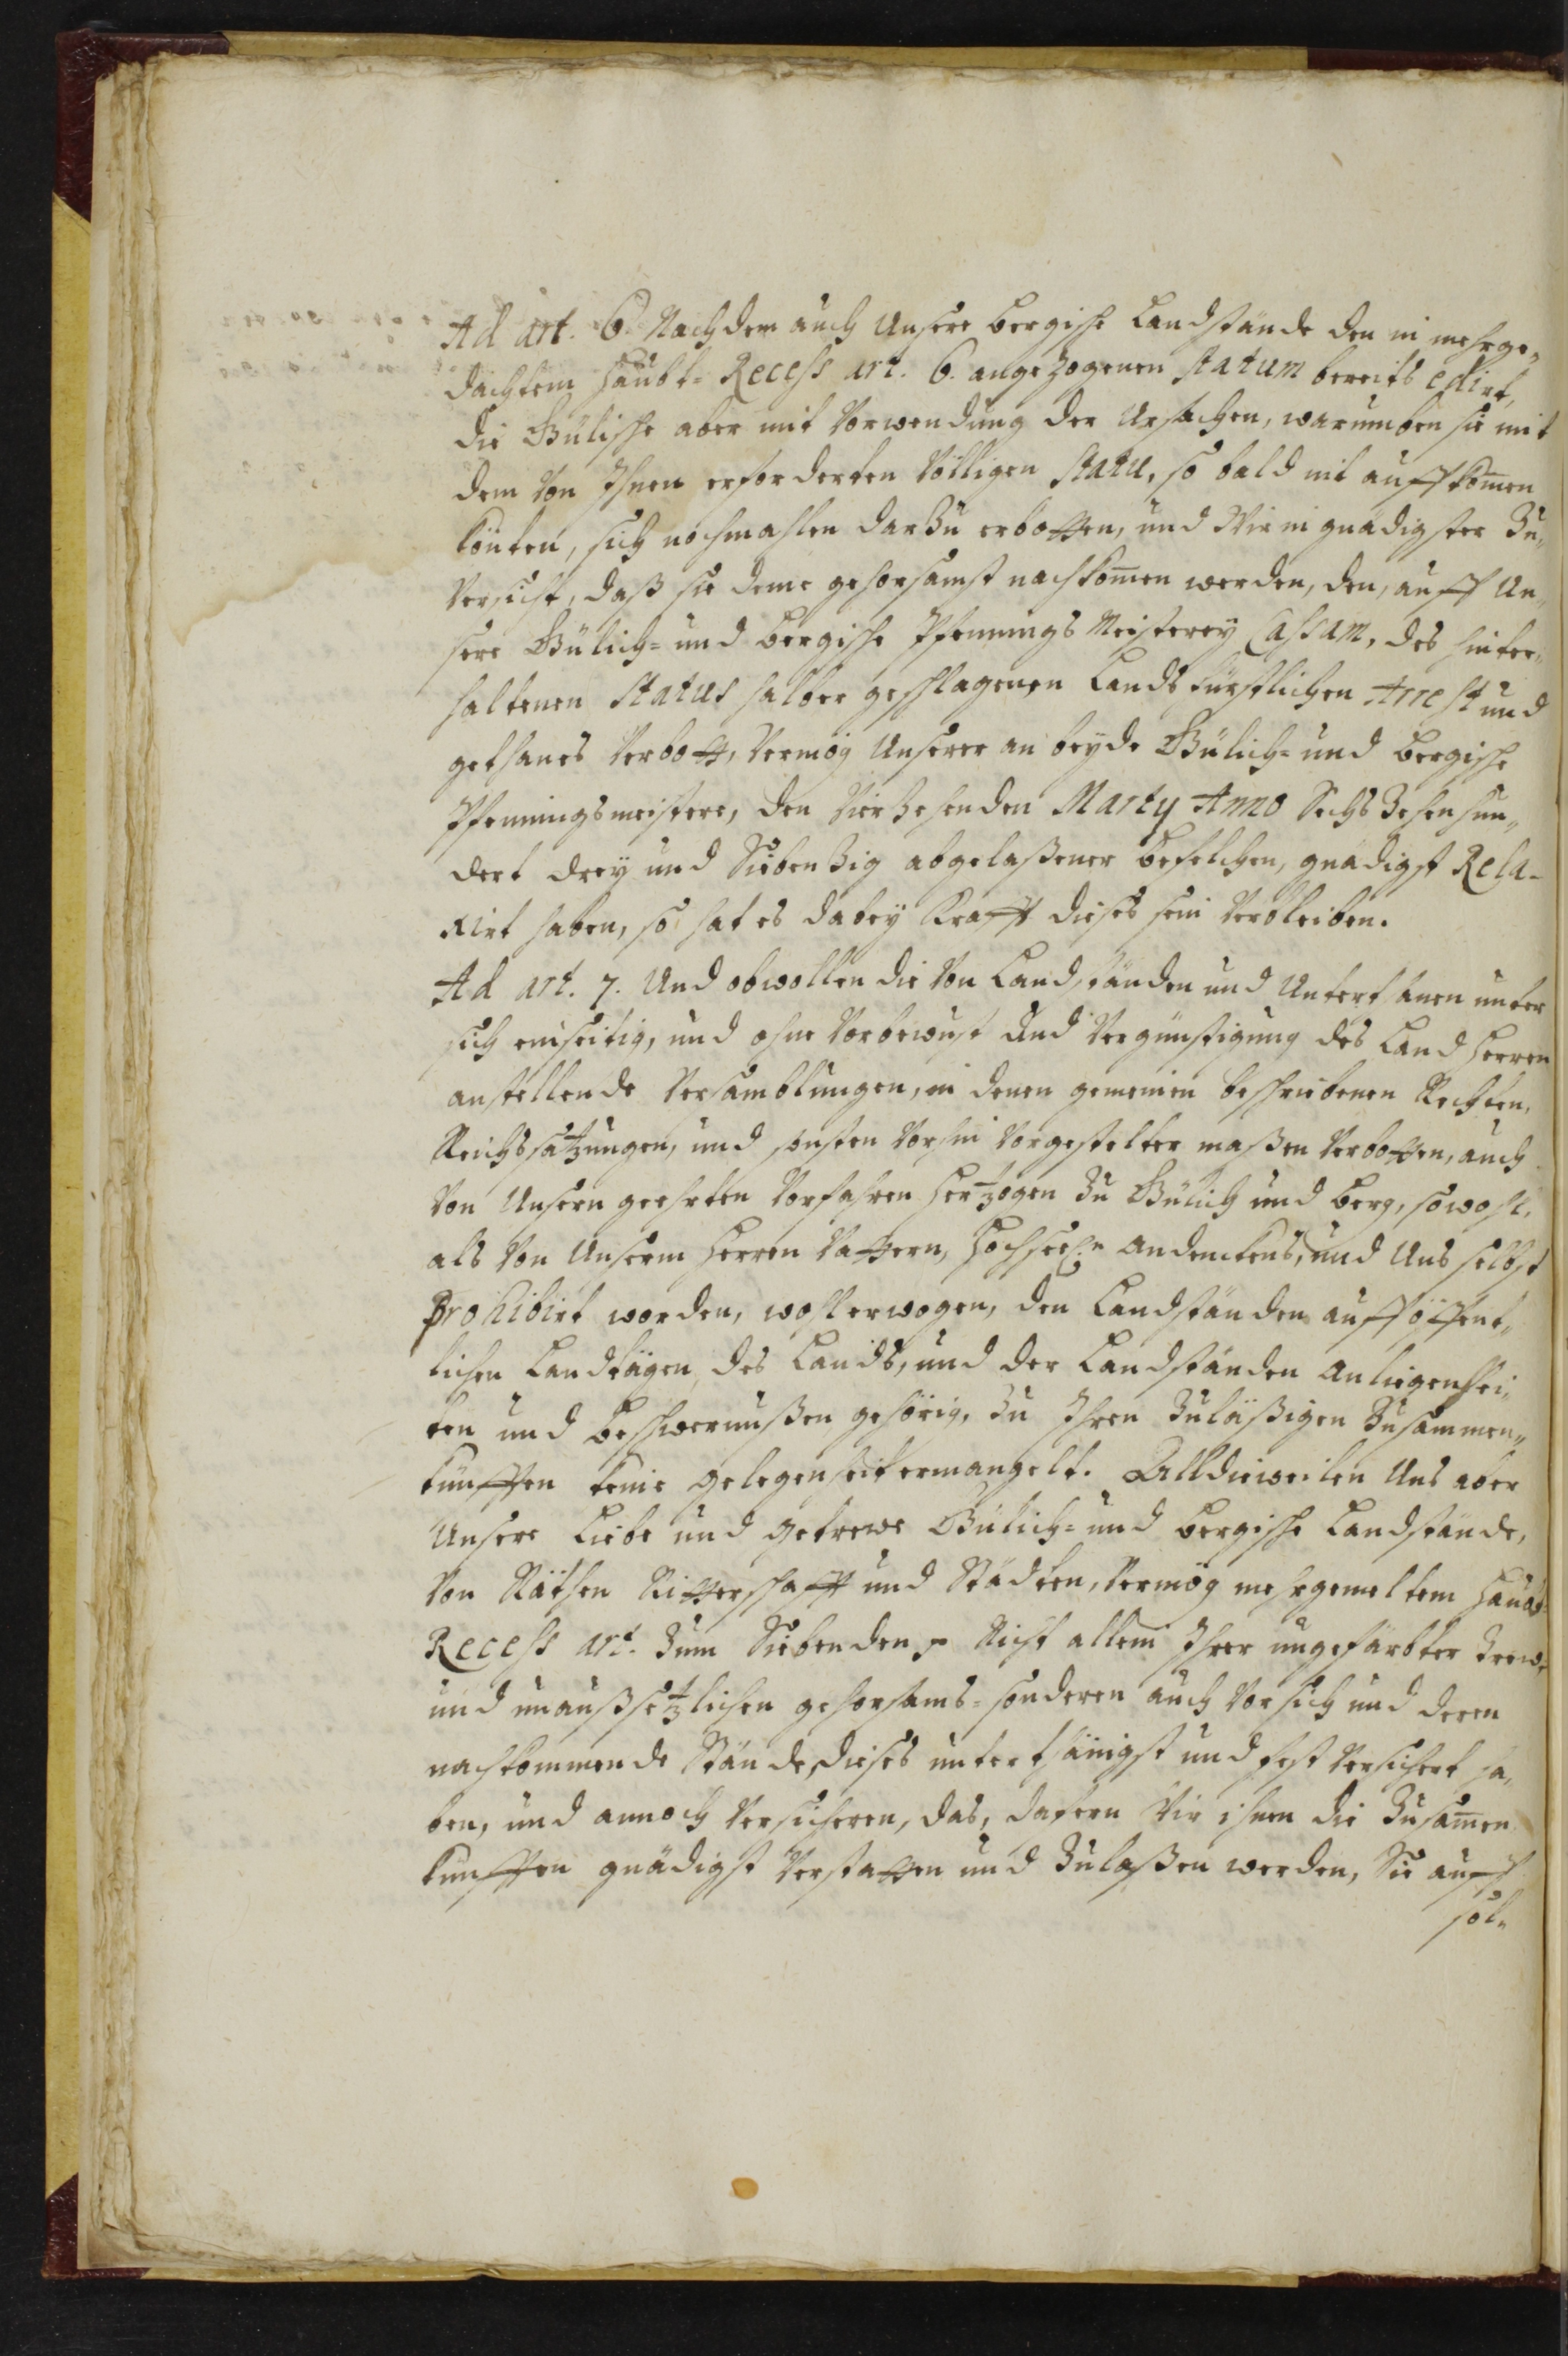 Ad art. 6. Nachdem auch Unsere Bergische Landstände den in mehrge„
dachtem Haubt- Recess art. 6. angezogenen statum bereits edirt,
die Gülische aber mit Vorwendung der Ursachen, warumben sie mit
dem von Ihnen erforderten völligen statu, so bald nit auffkom̅en
könten, sich nochmahlen darzu erbotten, und Wir in gnädigster Zu„
versicht, daß sie deme gehorsamst nachkom̅en werden, den, auff Un„
sere Gülich- und Bergische Pfennings Meisterey Cassam, des hinter„
haltenen Status halber geschlagenen Landtsfürstlichen Arrest und
gethanes Verbott, Vermög Unserer an beyde Gülich- und Bergische
Pfenningsmeistere, den Vierzehenden Marty Anno Sechszehenhun„
dert drey und Siebenzig abgelaßener Befelchen, gnädigst Rela-
xirt haben, so hat es dabey Krafft dieses sein Verbleiben.
Ad art. 7. Und obwollen die von Landständen und Unterthanen unter
sich einseitig, und ohne Vorbewust und Vergünstigung des Land Herren
anstellende Versamblungen, in denen gemeinen beschriebenen Rechten,
Reichssatzungen, und sonsten vorhin vorgestelter maßen verbotten, auch
von Unsern geehrten Vorfahren Hertzogen zu Gülich und Berg, sowohl,
als von Unserm Herren Vattern, Hochseel:n andenckens, und Uns selbst
prohibirt worden, wollerwogen, den Landständen auff öffent„
lichen Landtägen, des Lands, und der Landständen Anliegenhei„
ten und Beschwernußen gehörig, zu Ihren zuläßigen Zusammen„
künfften keine gelegenheit ermangelt. Alldieweilen Uns aber
Unsere Liebe und getrewe Gülich- und Bergische Landstände,
von Räthen Ritterschafft und Städten, Vermög mehrgemeltem Haubt-
Recess art. zum Siebenden, Nicht allein Ihrer ungefärbter Trew,
und unaußsetzlichen gehorsams- sonderen auch vor sich und deren
nachkommende Stände, dieses unterthänigst und fest versichert ha„
ben, und annoch versicheren, das, dafern Wir ihnen die Zusam̅en
kunfften gnädigst verstatten und zulaßen werden, Sie auff
sol„